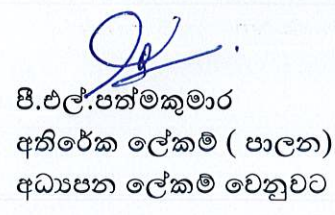 පී.එල්.පත්මකුමාර
අතිරේක ලේකම් ( පාලන)
අධ්‍යාපන ලේකම් වෙනුවට